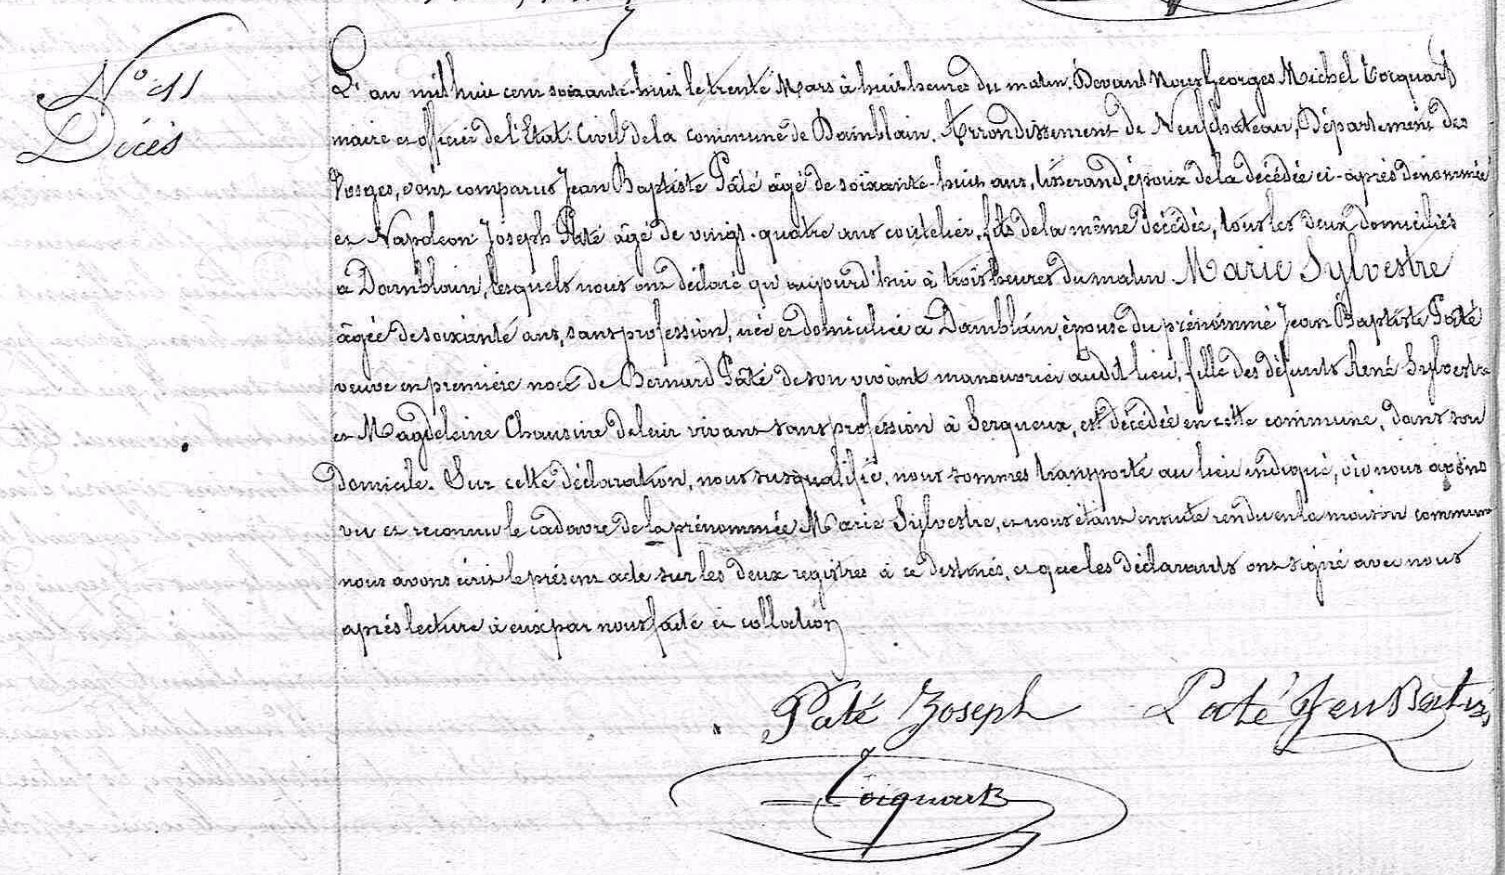 N° 11
Décès
L'an mil huit cent soixante-huit le trente Mars à huit heures du matin. Devant Nous Georges Michel Tocquart
maire et officier de l'Etat-Civil de la commune de Damblain. Arrondissement de Neufchateau, Département des
Vosges, sont comparus Jean Baptiste Pâté âgé de soixante-huit ans, tisserand, époux de la décédée ci-après dénommée
et Napoléon Joseph Pâté âgé de vingt-quatre ans coutelier, fils de la même décédée, tous les deux domiciliés
à Damblain, lesquels nous ont déclaré qu'aujourd'hui à trois heures du matin. Marie Sylvestre
âgée de soixante ans, sans profession, née et domiciliée à Damblain, épouse du prénommé Jean Baptiste Pâté
veuve en première noce de Bernard Pâté de son vivant manouvrier audit lieu, fille des défunts René Sylvestre
et Magdeleine de leur vivant sans profession à Serqueux, est décédée en cette commune, dans son
domicile. Sur cette déclaration, nous susqualifié, nous sommes transporté au lieu indiqué, où nous avons
vu et reconnu le cadavre de la prénommée Marie Sylvestre, et nous étant ensuite rendu en la maison commune
nous avons écrit le présent acte sur les deux registres à ce destinés, et que les déclarants ont signé avec nous
après lecture à eux par nous faite et collation
Paté Joseph Paté Jean
Tocquart